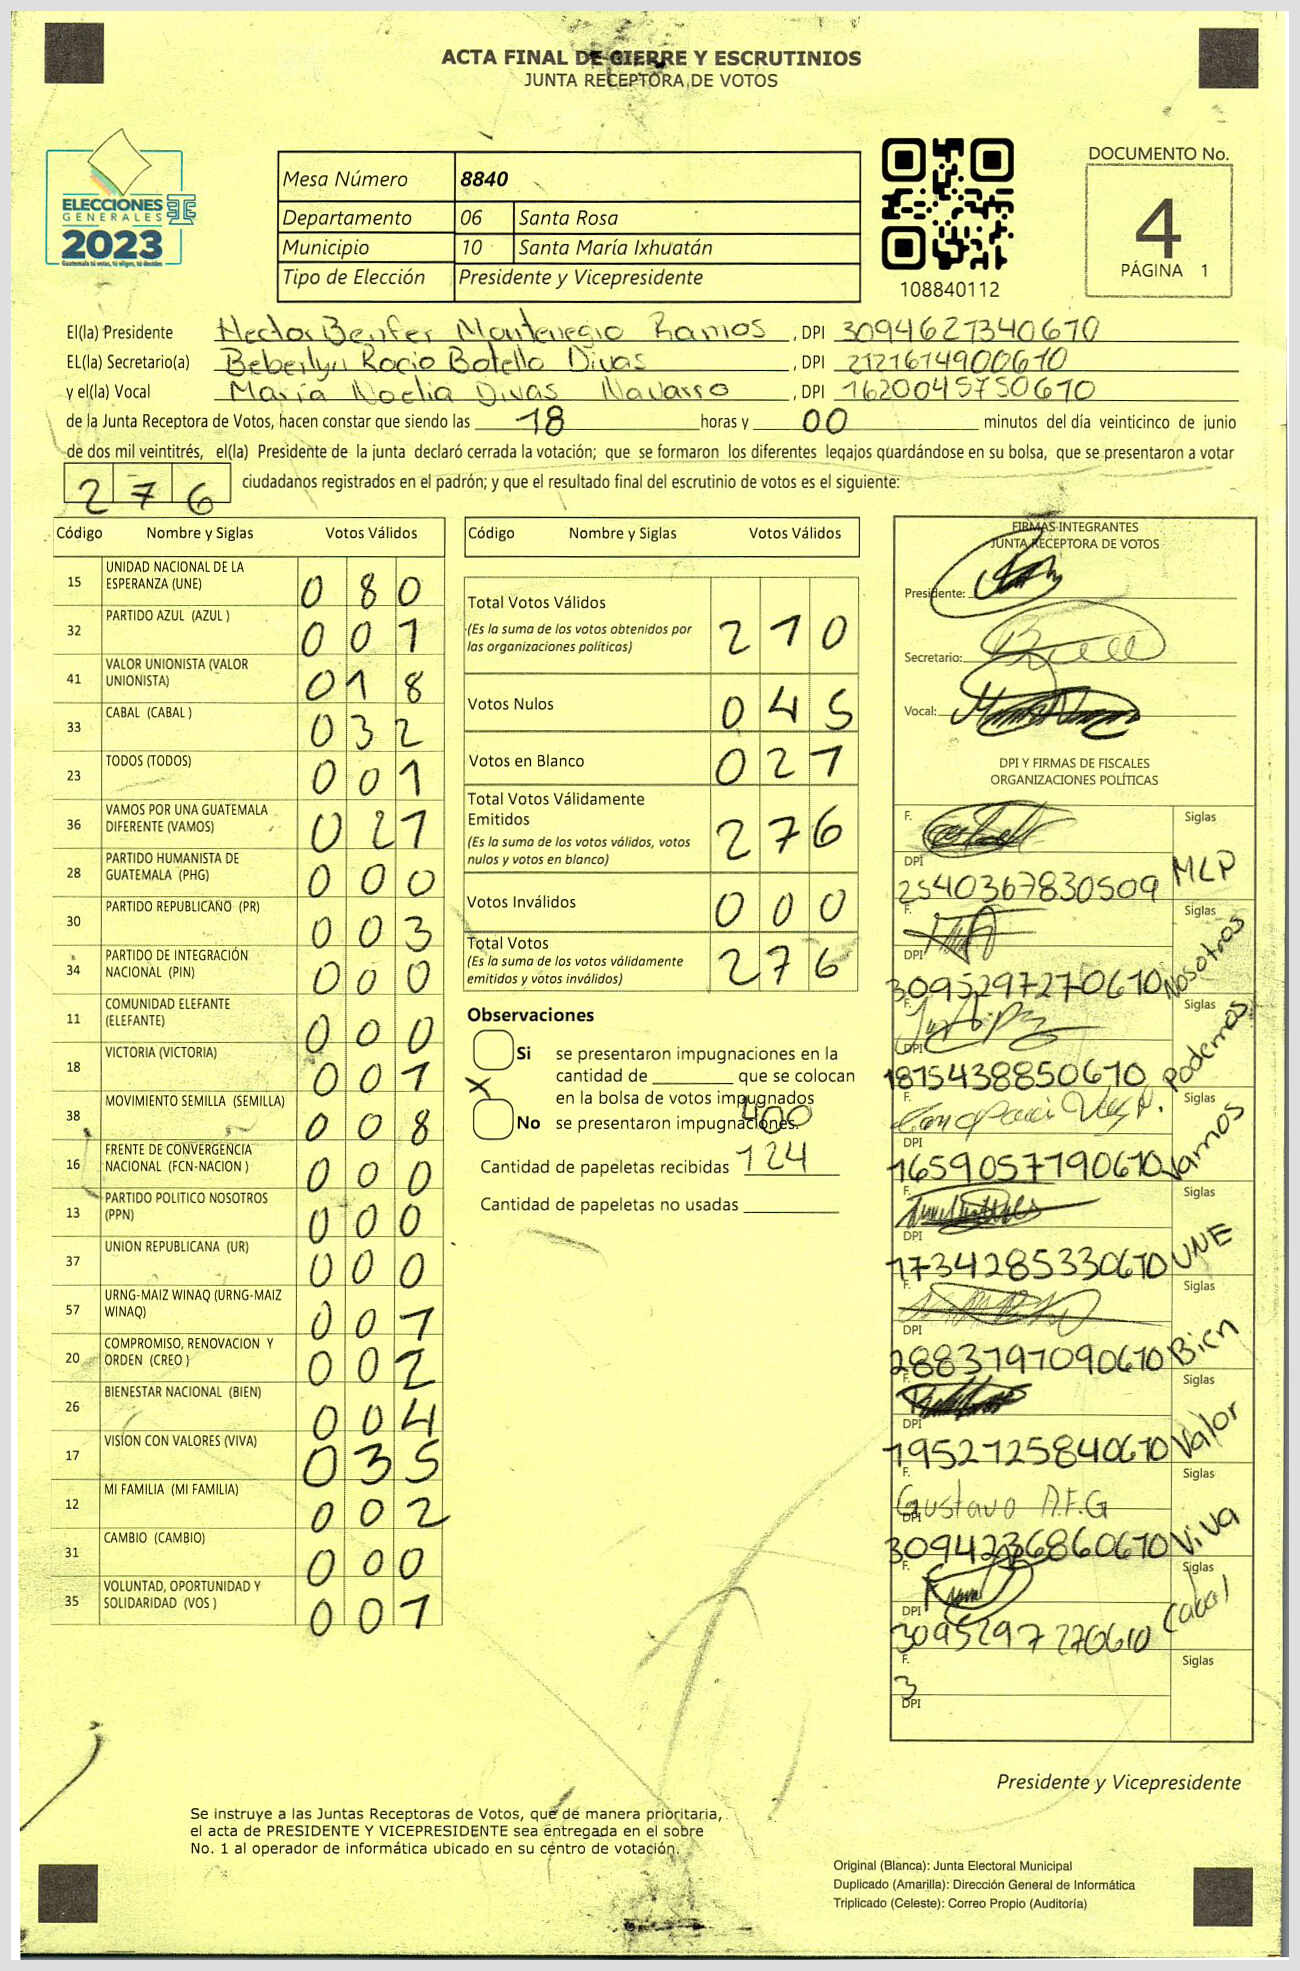 ACTA FINAL DE CIERRE Y ESCRUTINIOS
JUNTA RECEPTORA DE VOTOS
ELECCIONES
GENERALES
2023
Guatemala tú votas, tú eliges, tú decides
Mesa Número 8840
Departamento 06 Santa Rosa
Municipio 10 Santa María Ixhuatán
Tipo de Elección Presidente y Vicepresidente
108840112
DOCUMENTO No.
4
PÁGINA 1
El(la) Presidente Hector Benfer Montenegro Ramos, DPI 3094627340610
EL(la) Secretario(a) Beberlyn Rocio Botello Divas, DPI 2121614900610
y el(la) Vocal María Noelia Divas Navarro, DPI 1620045750610
de la Junta Receptora de Votos, hacen constar que siendo las 18 horas y 00 minutos del día veinticinco de junio
de dos mil veintitrés, el(la) Presidente de la junta declaró cerrada la votación; que se formaron los diferentes legajos quardándose en su bolsa, que se presentaron a votar
276 ciudadanos registrados en el padrón; y que el resultado final del escrutinio de votos es el siguiente:
Código Nombre y Siglas Votos Válidos
15 UNIDAD NACIONAL DE LA ESPERANZA (UNE) 080
32 PARTIDO AZUL (AZUL ) 001
41 VALOR UNIONISTA (VALOR UNIONISTA) 018
33 CABAL (CABAL ) 032
23 TODOS (TODOS) 001
36 VAMOS POR UNA GUATEMALA DIFERENTE (VAMOS) 021
28 PARTIDO HUMANISTA DE GUATEMALA (PHG) 000
30 PARTIDO REPUBLICANO (PR) 003
34 PARTIDO DE INTEGRACIÓN NACIONAL (PIN) 000
11 COMUNIDAD ELEFANTE (ELEFANTE) 000
18 VICTORIA (VICTORIA) 001
38 MOVIMIENTO SEMILLA (SEMILLA) 008
16 FRENTE DE CONVERGENCIA NACIONAL (FCN-NACION ) 000
13 PARTIDO POLITICO NOSOTROS (PPN) 000
37 UNION REPUBLICANA (UR) 000
57 URNG-MAIZ WINAQ (URNG-MAIZ WINAQ) 001
20 COMPROMISO, RENOVACION Y ORDEN (CREO ) 002
26 BIENESTAR NACIONAL (BIEN) 004
17 VISION CON VALORES (VIVA) 035
12 MI FAMILIA (MI FAMILIA) 002
31 CAMBIO (CAMBIO) 000
35 VOLUNTAD, OPORTUNIDAD Y SOLIDARIDAD (VOS ) 001
Código Nombre y Siglas Votos Válidos
Total Votos Válidos 210
(Es la suma de los votos obtenidos por
las organizaciones políticas)
Votos Nulos 045
Votos en Blanco 021
Total Votos Válidamente
Emitidos 276
(Es la suma de los votos válidos, votos
nulos y votos en blanco)
Votos Inválidos 000
Total Votos 276
(Es la suma de los votos válidamente
emitidos y votos inválidos)
Observaciones
Si se presentaron impugnaciones en la
cantidad de ________ que se colocan
en la bolsa de votos impugnados
X
No se presentaron impugnaciones.
400
Cantidad de papeletas recibidas 124
Cantidad de papeletas no usadas
FIRMAS INTEGRANTES
JUNTA RECEPTORA DE VOTOS
Presidente:
Secretario:
Vocal:
DPI Y FIRMAS DE FISCALES
ORGANIZACIONES POLÍTICAS
F. Siglas
DPI 2540367830509 MLP
F. Siglas
DPI 3095297270610 Nosotros
F. Siglas
DPI 1815438850610 Podemos
Siglas
DPI 1659057190610 Vamos
F. Siglas
DPI 1734285330610 UNE
F. Siglas
DPI 2883797090610 Bien
Siglas
DPI 1952725840610 Valor
F. Siglas
Gustavo A.F.G
DPI 3094236860610 Viva
F. Siglas
DPI 3095297270610 Cabal
F. Siglas
3
DPI
Presidente y Vicepresidente
Se instruye a las Juntas Receptoras de Votos, que de manera prioritaria,
el acta de PRESIDENTE Y VICEPRESIDENTE sea entregada en el sobre
No. 1 al operador de informática ubicado en su centro de votación.
Original (Blanca): Junta Electoral Municipal
Duplicado (Amarilla): Dirección General de Informática
Triplicado (Celeste): Correo Propio (Auditoría)